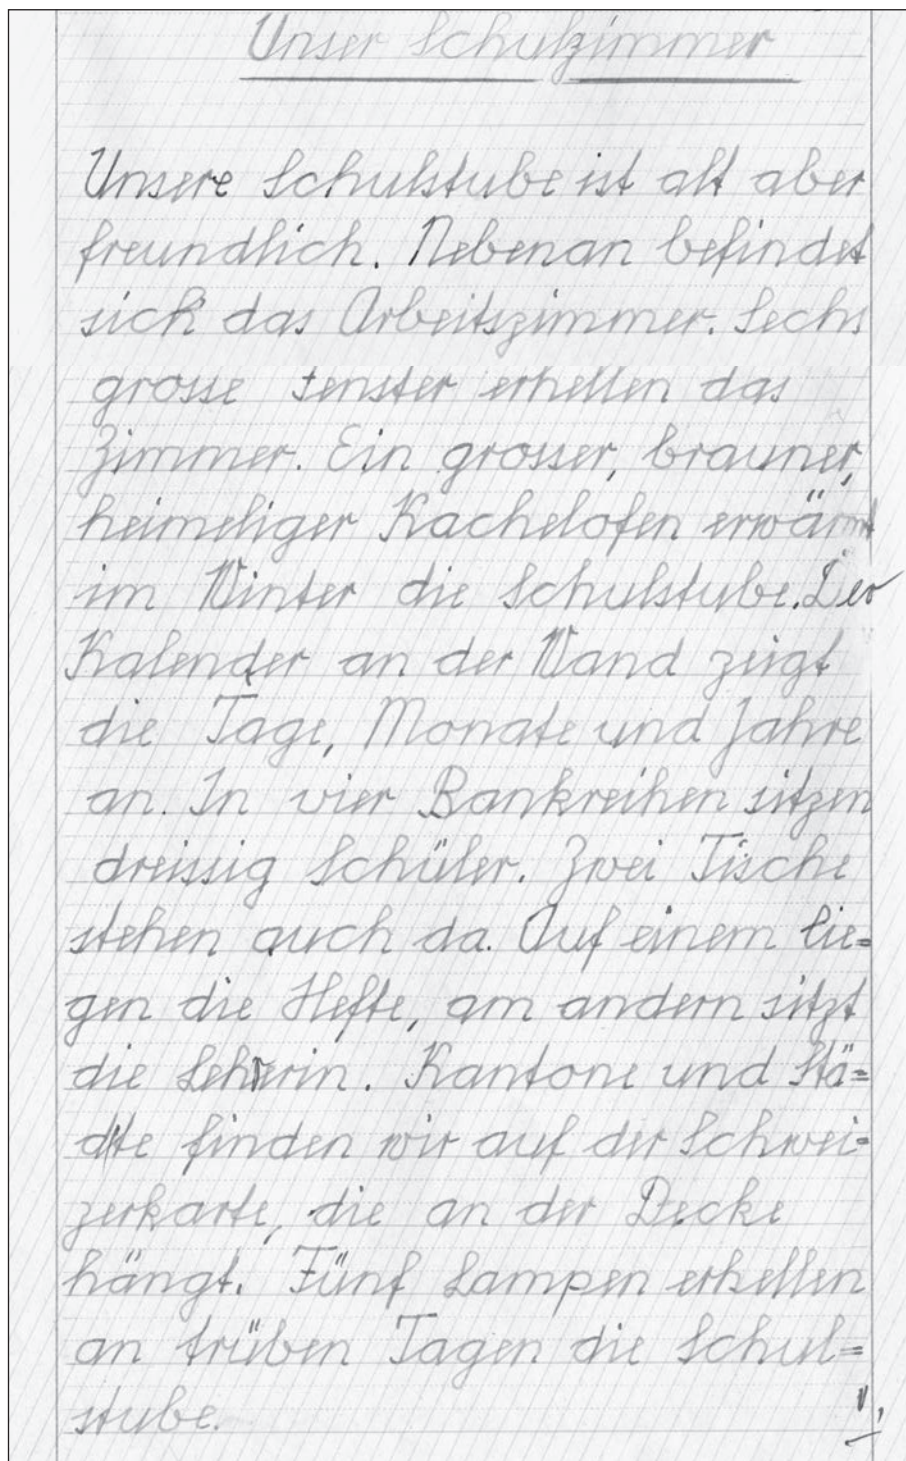 Unser Schulzimmer
Unsere Schulstube ist alt aber
freundlich. Nebenan befindet
sich das Arbeitszimmer. Sechs
grosse Fenster erhellen das
Zimmer. Ein grosser, brauner,
heimeliger Kachelofen erwärmt
im Winter die Schulstube. Der
Kalender an der Wand zeigt
die Tage, Monate und Jahre
an. In vier Bankreihen sitzen
dreissig Schüler. Zwei Tische
stehen auch da. Auf einem lie=
gen die Hefte, am andern sitzt
die Lehrerin. Kantone und Stä=
dte finden wir auf der Schwei=
zerkarte, die an der Decke
hängt. Fünf Lampen erhellen
an trüben Tagen die Schul=
stube.